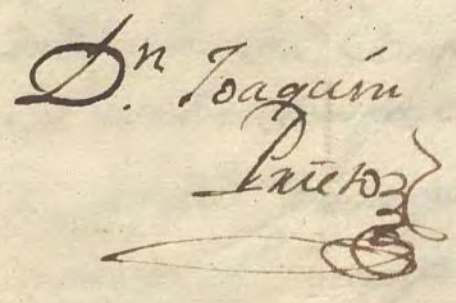 Dn. Joaquín
Prieto